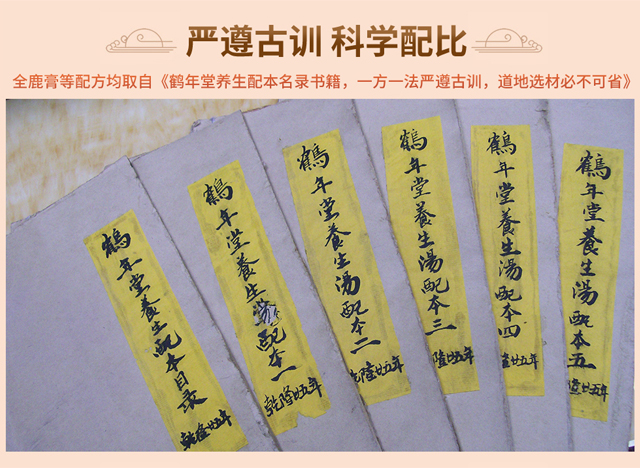 严遵古训 科学配比
全鹿膏等配方均取自《鹤年堂养生配本名录书籍，一方一法严遵古训，道地选材必不可省》
鶴年堂養生配本目录
乾隆廿五年
鶴年堂養生湯配本一
乾隆廿五年
鶴年堂養生湯配本二
乾隆廿五年
鶴年堂養生湯配本三
隆廿五年
鶴年堂養生湯配本四
廿五年
鶴年堂養生湯配本五
廿五年